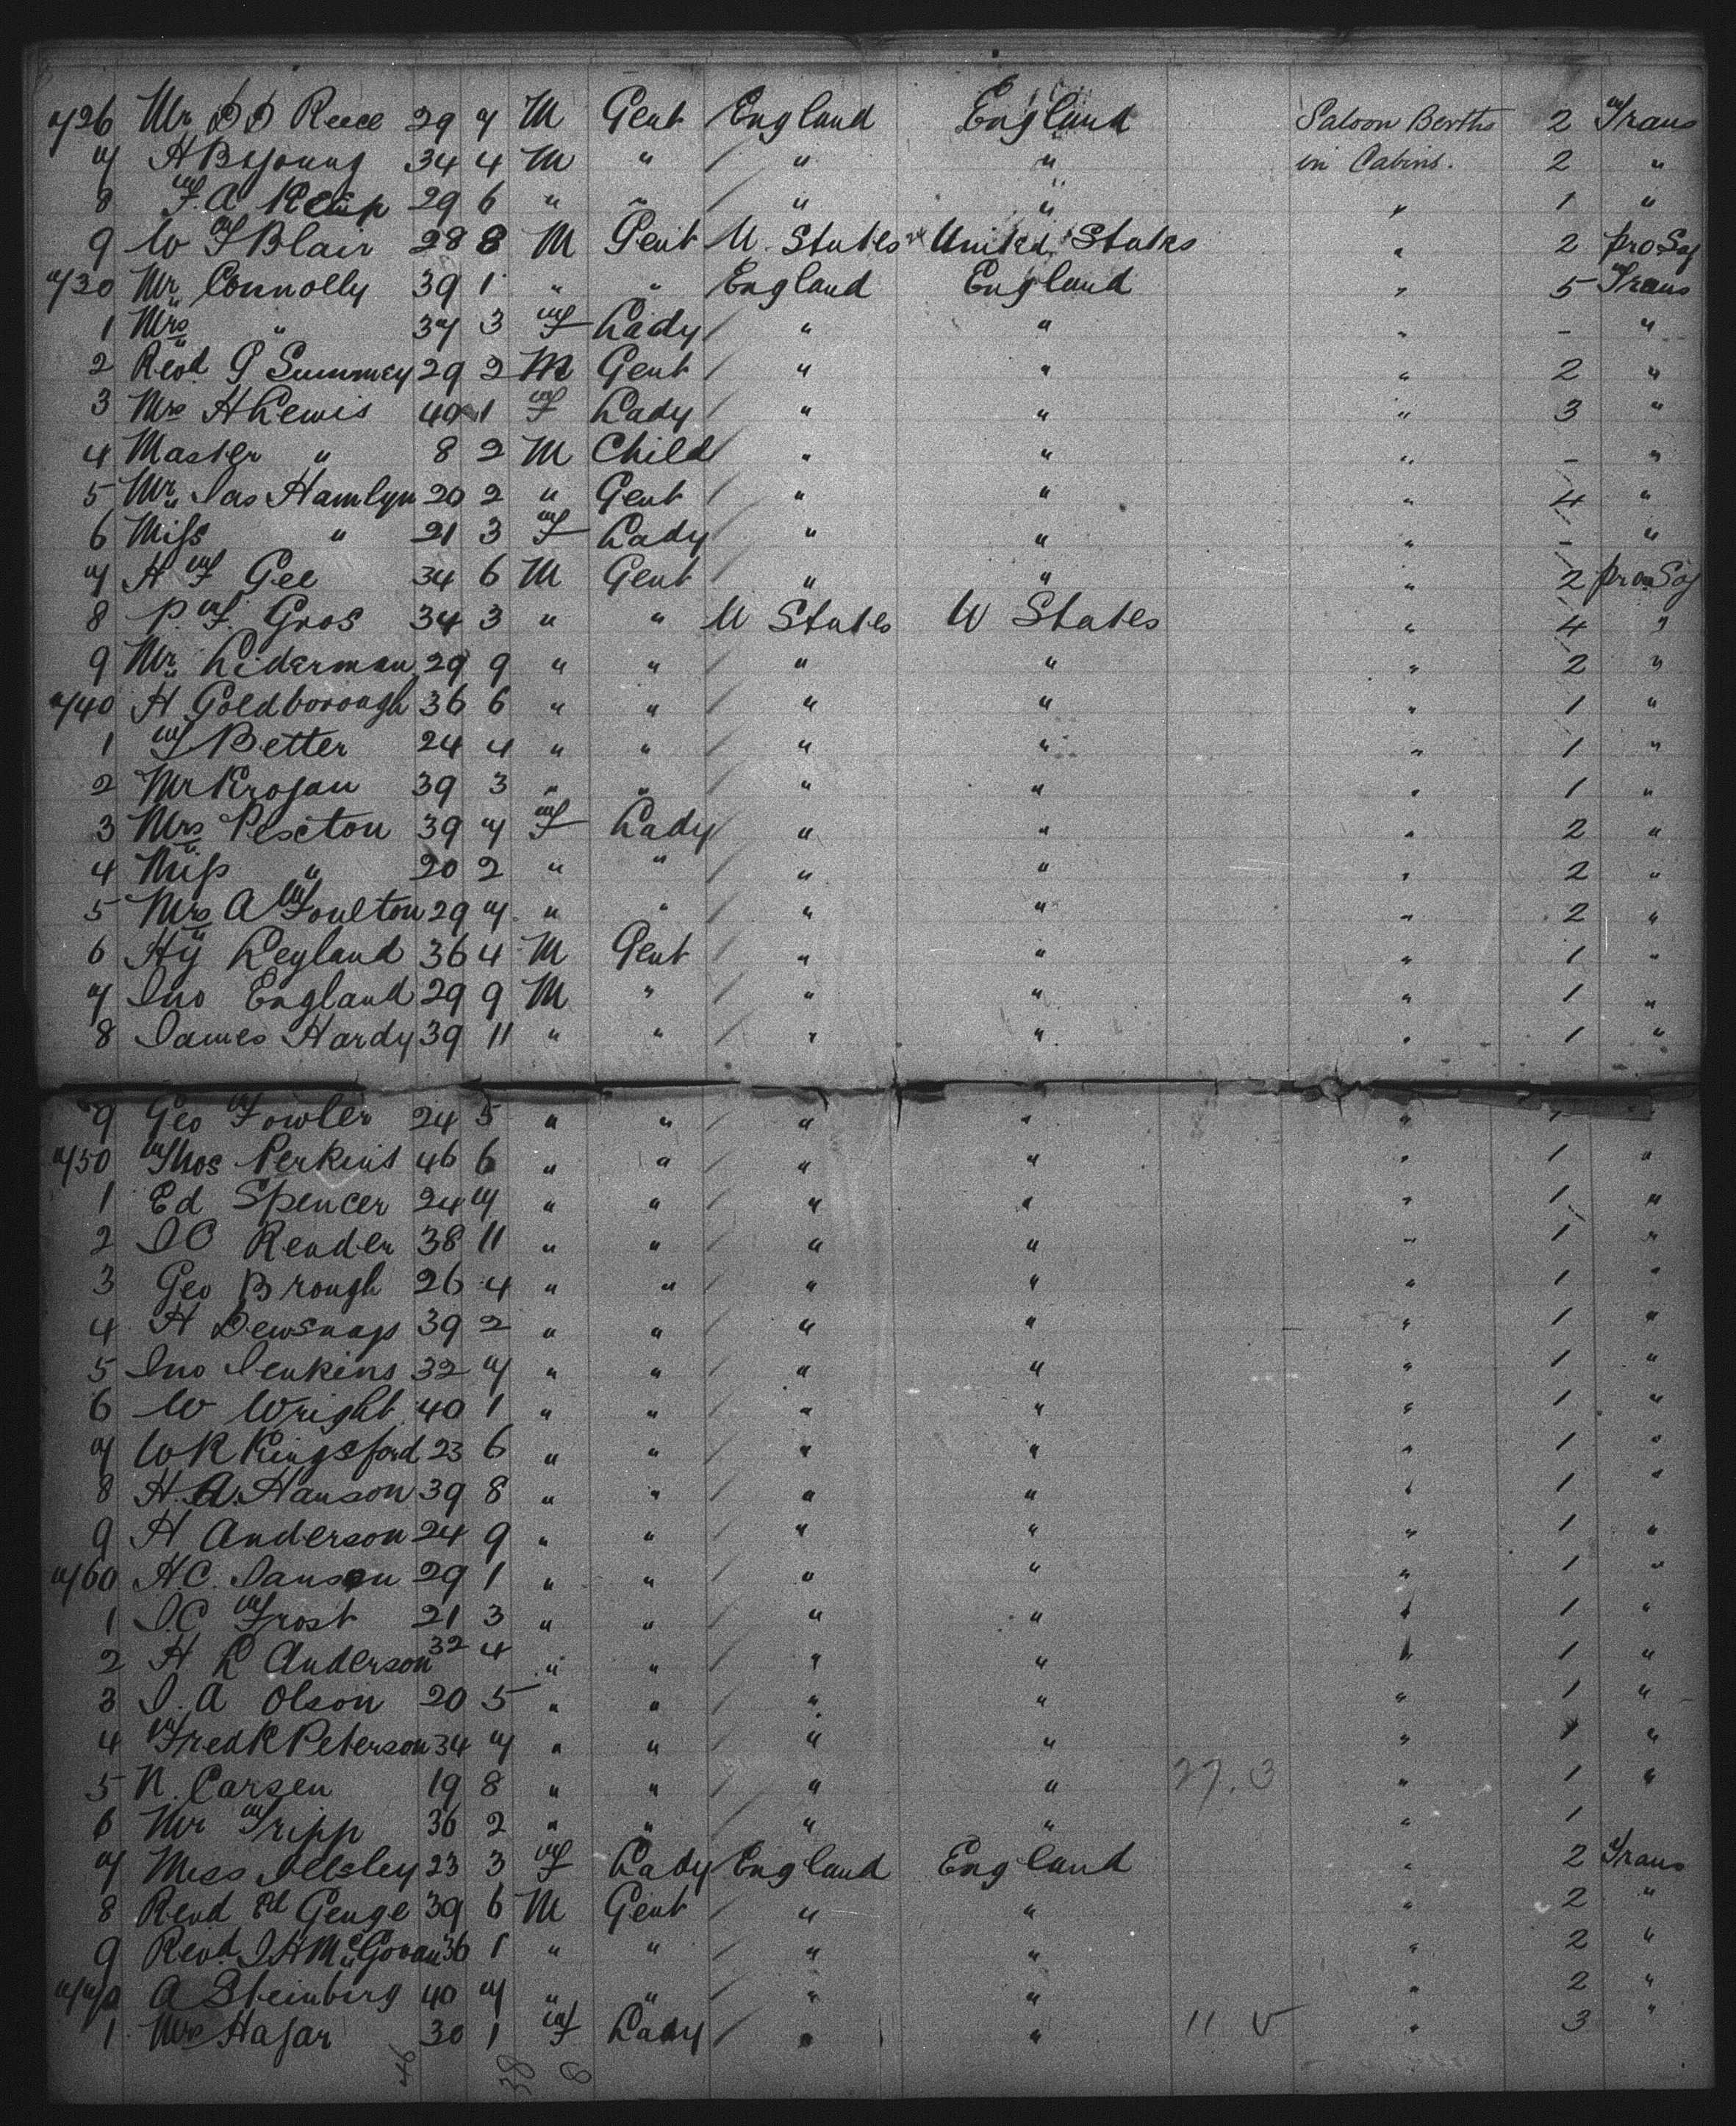 726 Mr D D Reece 29 7 M Gent / England England Saloon Berths 2 Trans
7 H B Young 34 4 M " / " " in Cabins. 2 "
8 F. A Kemp 29 6 " " / " " " 1 "
9 W F Blair 28 8 M Gent U. States United States " 2 pro Soj
730 Mr Connolly 39 1 " " England England " 5 Trans
1 Mrs " 37 3 F Lady / " " " - "
2 Revd. G Summey 29 2 M Gent / " " " 2 "
3 Mrs H Lewis 40 1 F Lady / " " " 3 "
4 Master " 8 2 M Child / " " " - "
5 Mr Jas Hamlyn 20 2 " Gent / " " " 4 "
6 Miss " 21 3 F Lady / " " " - "
7 H F Gee 34 6 M Gent / " " " 2 pro Soj
8 P. F. Gros 34 3 " " U States U States " 4 "
9 Mr Liderman 29 9 " " / " " " 2 "
740 H Goldborough 36 6 " " / " " " 1 "
1 F Better 24 4 " " / " " " 1 "
2 Mr Krojan 39 3 " " / " " " 1 "
3 Mrs Pexton 39 7 F Lady / " " " 2 "
4 Miss " 20 2 " " / " " " 2 "
5 Mrs A Foulton 29 7 " " / " " " 2 "
6 Hy Leyland 36 4 M Gent / " " " 1 "
7 Jno England 29 9 M " / " " " 1 "
8 James Hardy 39 11 " " / " " " 1 "
9 Geo Fowler 24 5 " " / " " "
750 Thos Perkins 46 6 " " / " " " 1 "
1 Ed Spencer 24 7 " " / " " " 1 "
2 J C Reader 38 11 " " / " " " 1 "
3 Geo Brough 26 4 " " / " " " 1 "
4 H Dewsnap 39 2 " " / " " " 1 "
5 Jno Jenkins 32 7 " " / " " " 1 "
6 W Wright 40 1 " " / " " " 1 "
7 W R Kingsford 23 6 " " / " " " 1 "
8 H. A. Hanson 39 8 " " / " " " 1 "
9 H Anderson 24 9 " " / " " " 1 "
760 H. C. Janson 29 1 " " / " " " 1 "
1 J. C Frost 21 3 " " / " " " 1 "
2 H L Anderson 32 4 " " / " " " 1 "
3 J. A Olson 20 5 " " / " " " 1 "
4 Fredk Peterson 34 7 " " / " " " 1 "
5 N. Carsen 19 8 " " / " " 27. 3 " 1 "
6 Mr Tripp 36 2 " " / " " " 1
7 Miss Illsley 23 3 F Lady England England " 2 Trans
8 Revd Ed Genge 39 6 M Gent / " " " 2 "
9 Revd. J H McGovan 36 1 " " / " " " 2 "
770 A Steinberg 40 7 " " / " " " 2 "
1 Mrs Hajar 30 1 F Lady / " " 11 V " 3 "
46 38 8